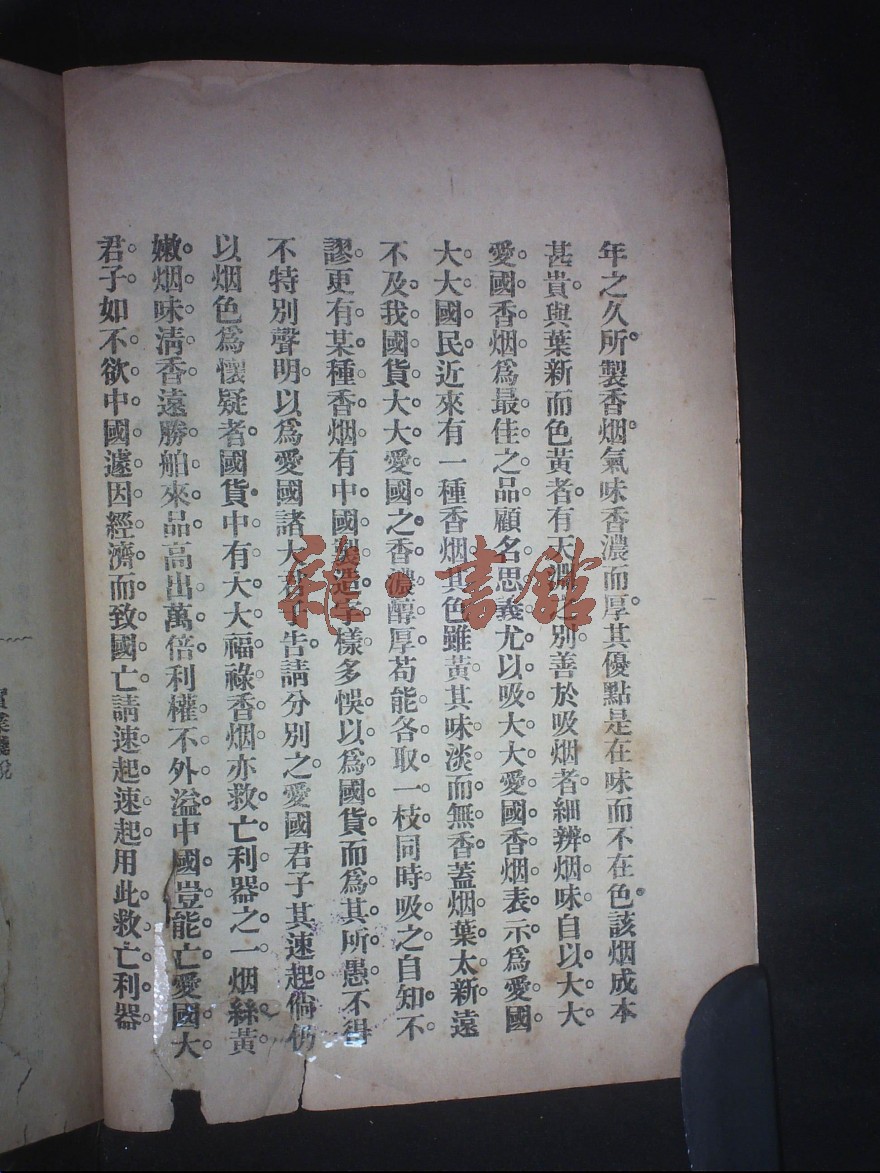 年之久所製香烟氣味香濃而厚其優點是在味而不在色該烟成本
甚貴與葉新而色黃者有天淵之別善於吸烟者細辨烟味自以大大
愛國香烟爲最佳之品顧名思義尤以吸大大愛國香烟表示爲愛國
大大國民近來有一種香烟其色雖黃其味淡而無香蓋烟葉太新遠
不及我國貨大大愛國之香濃醇厚苟能各取一枝同時吸之自知不
謬更有某種香烟有中國製造字樣多悞以爲國貨而爲其所愚不得
不特別聲明以爲愛國諸大君子告請分別之愛國君子其速起倘仍
以烟色爲懷疑者國貨中有大大福祿香烟亦救亡利器之一烟絲黃
嫩烟味淸香遠勝舶來品高出萬倍利權不外溢中國豈能亡愛國大
君子如不欲中國遽因經濟而致國亡請速起速起用此救亡利器
雜·書館